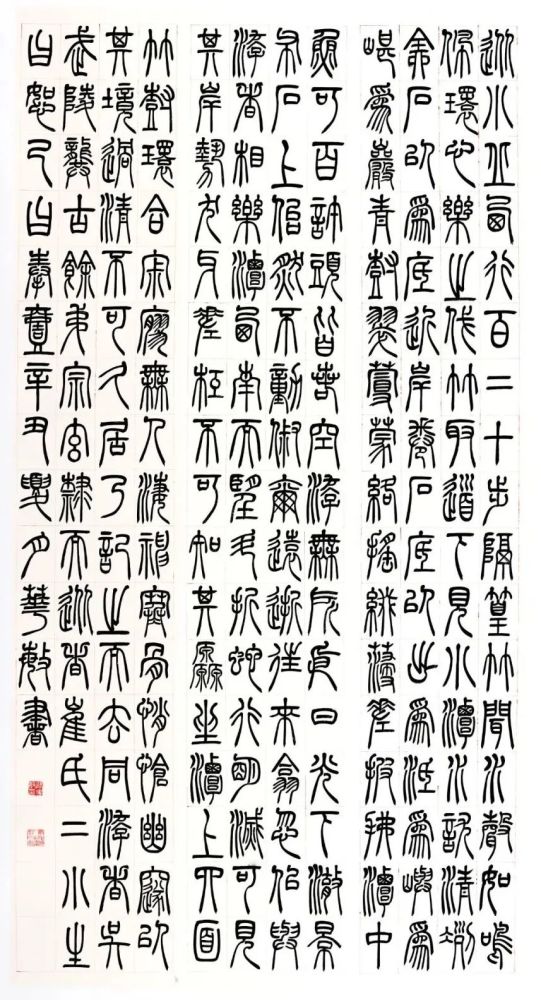 從小丘西行百二十步隔篁竹聞水聲如鳴
佩環心樂之伐竹取道下見小潭水尤清洌
全石以為底近岸卷石底以出為坻為嶼為
嵁為巖青樹翠蔓蒙絡搖綴參差披拂潭中
魚可百許頭皆若空游無所依日光下澈景
布石上佁然不動俶爾遠逝往來翕忽似與
游者相樂潭西南而望斗折蛇行明滅可見
其岸勢犬牙差互不可知其源坐潭上四面
竹樹環合寂寥無人淒神寒骨悄愴幽邃以
其境過清不可久居乃記之而去同游者吳
武陵龔古餘弟宗玄隸而從者崔氏二小生
曰恕己曰奉壹辛丑月華敏書